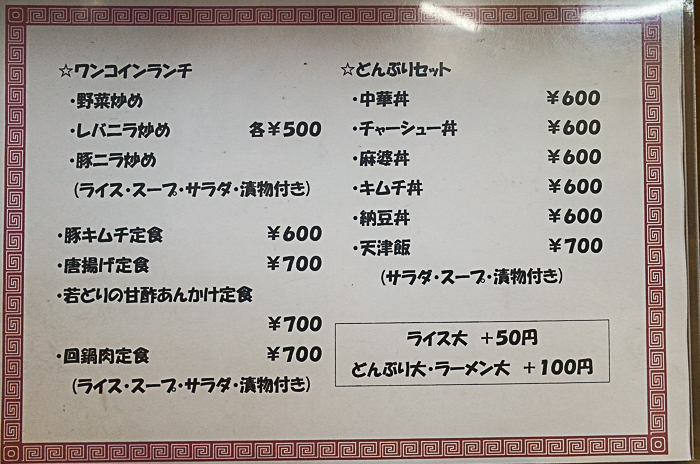 ☆ワンコインランチ
・野菜炒め
・レバニラ炒め 各￥500
・豚ニラ炒め
(ライス・スープ・サラダ・漬物付き)
・豚キムチ定食 ￥600
・唐揚げ定食 ￥700
・若どりの甘酢あんかけ定食
￥700
・回鍋肉定食 ￥700
(ライス・スープ・サラダ・漬物付き)
☆どんぶりセット
・中華丼 ￥600
・チャーシュー丼 ￥600
・麻婆丼 ￥600
・キムチ丼 ￥600
・納豆丼 ￥600
・天津飯 ￥700
(サラダ・スープ・漬物付き)
ライス大 +50円
どんぶり大・ラーメン大 +100円